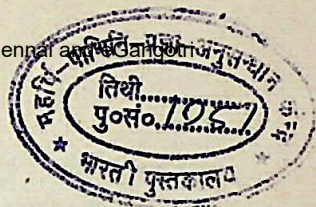 ennai and eGangotri
महर्षि-पाणिनि- अनुसन्धान
तिथी..............
पु०सं० 1051
★ भारती पुस्तकालय ★